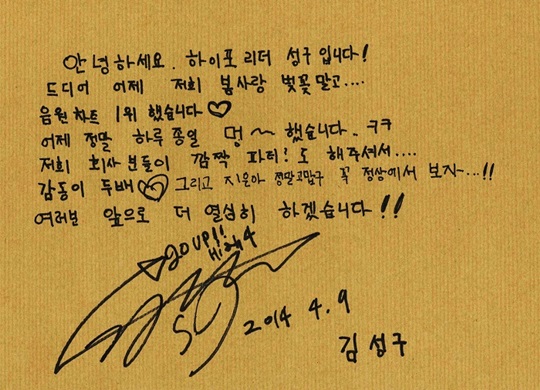 안녕하세요. 하이포 리더 성구입니다!
드디어 어제 저희 봄사랑 벚꽃말고....
음원차트 1위 했습니다♡
어제 정말 하루종일 멍~ 했습니다. ㅋㅋ
저희 회사 분들이 깜짝 파티! 도 해주셔서....
감동이 두배♡ 그리고 지은아 정말고맙구 꼭 정상에서 보자~...!!
여러분 앞으로 더 열심히 하겠습니다!!
GO UP!!
High4
SG
2014 4. 9
김성구